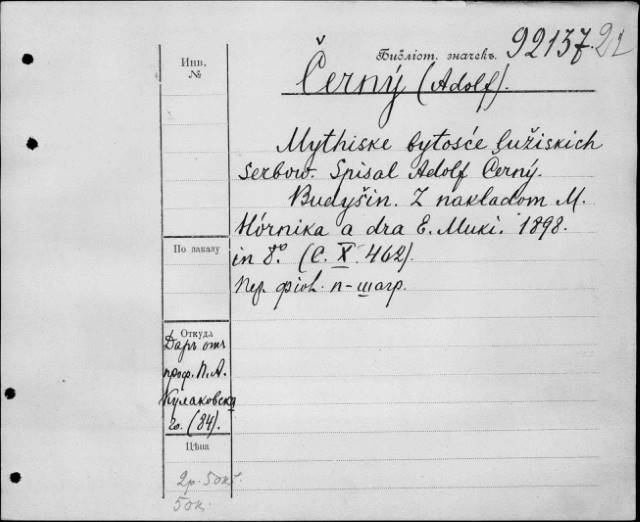 Библіот. значекъ. 92137. 21
Инв.
№
Černý (Adolf).
Mythiske bytosće łužiskich
Serbow. Spisał Adolf Černý.
Budyšin. Z nakładom M.
Hórnika a dra E. Muki. 1898.
in 8.º (C. X. 462).
По заказу
Пер. фіол. п-шагр.
Откуда
Даръ отъ
проф. П. А.
Кулаковска
го. (84).
Цѣна
2р. 50к.
50к.